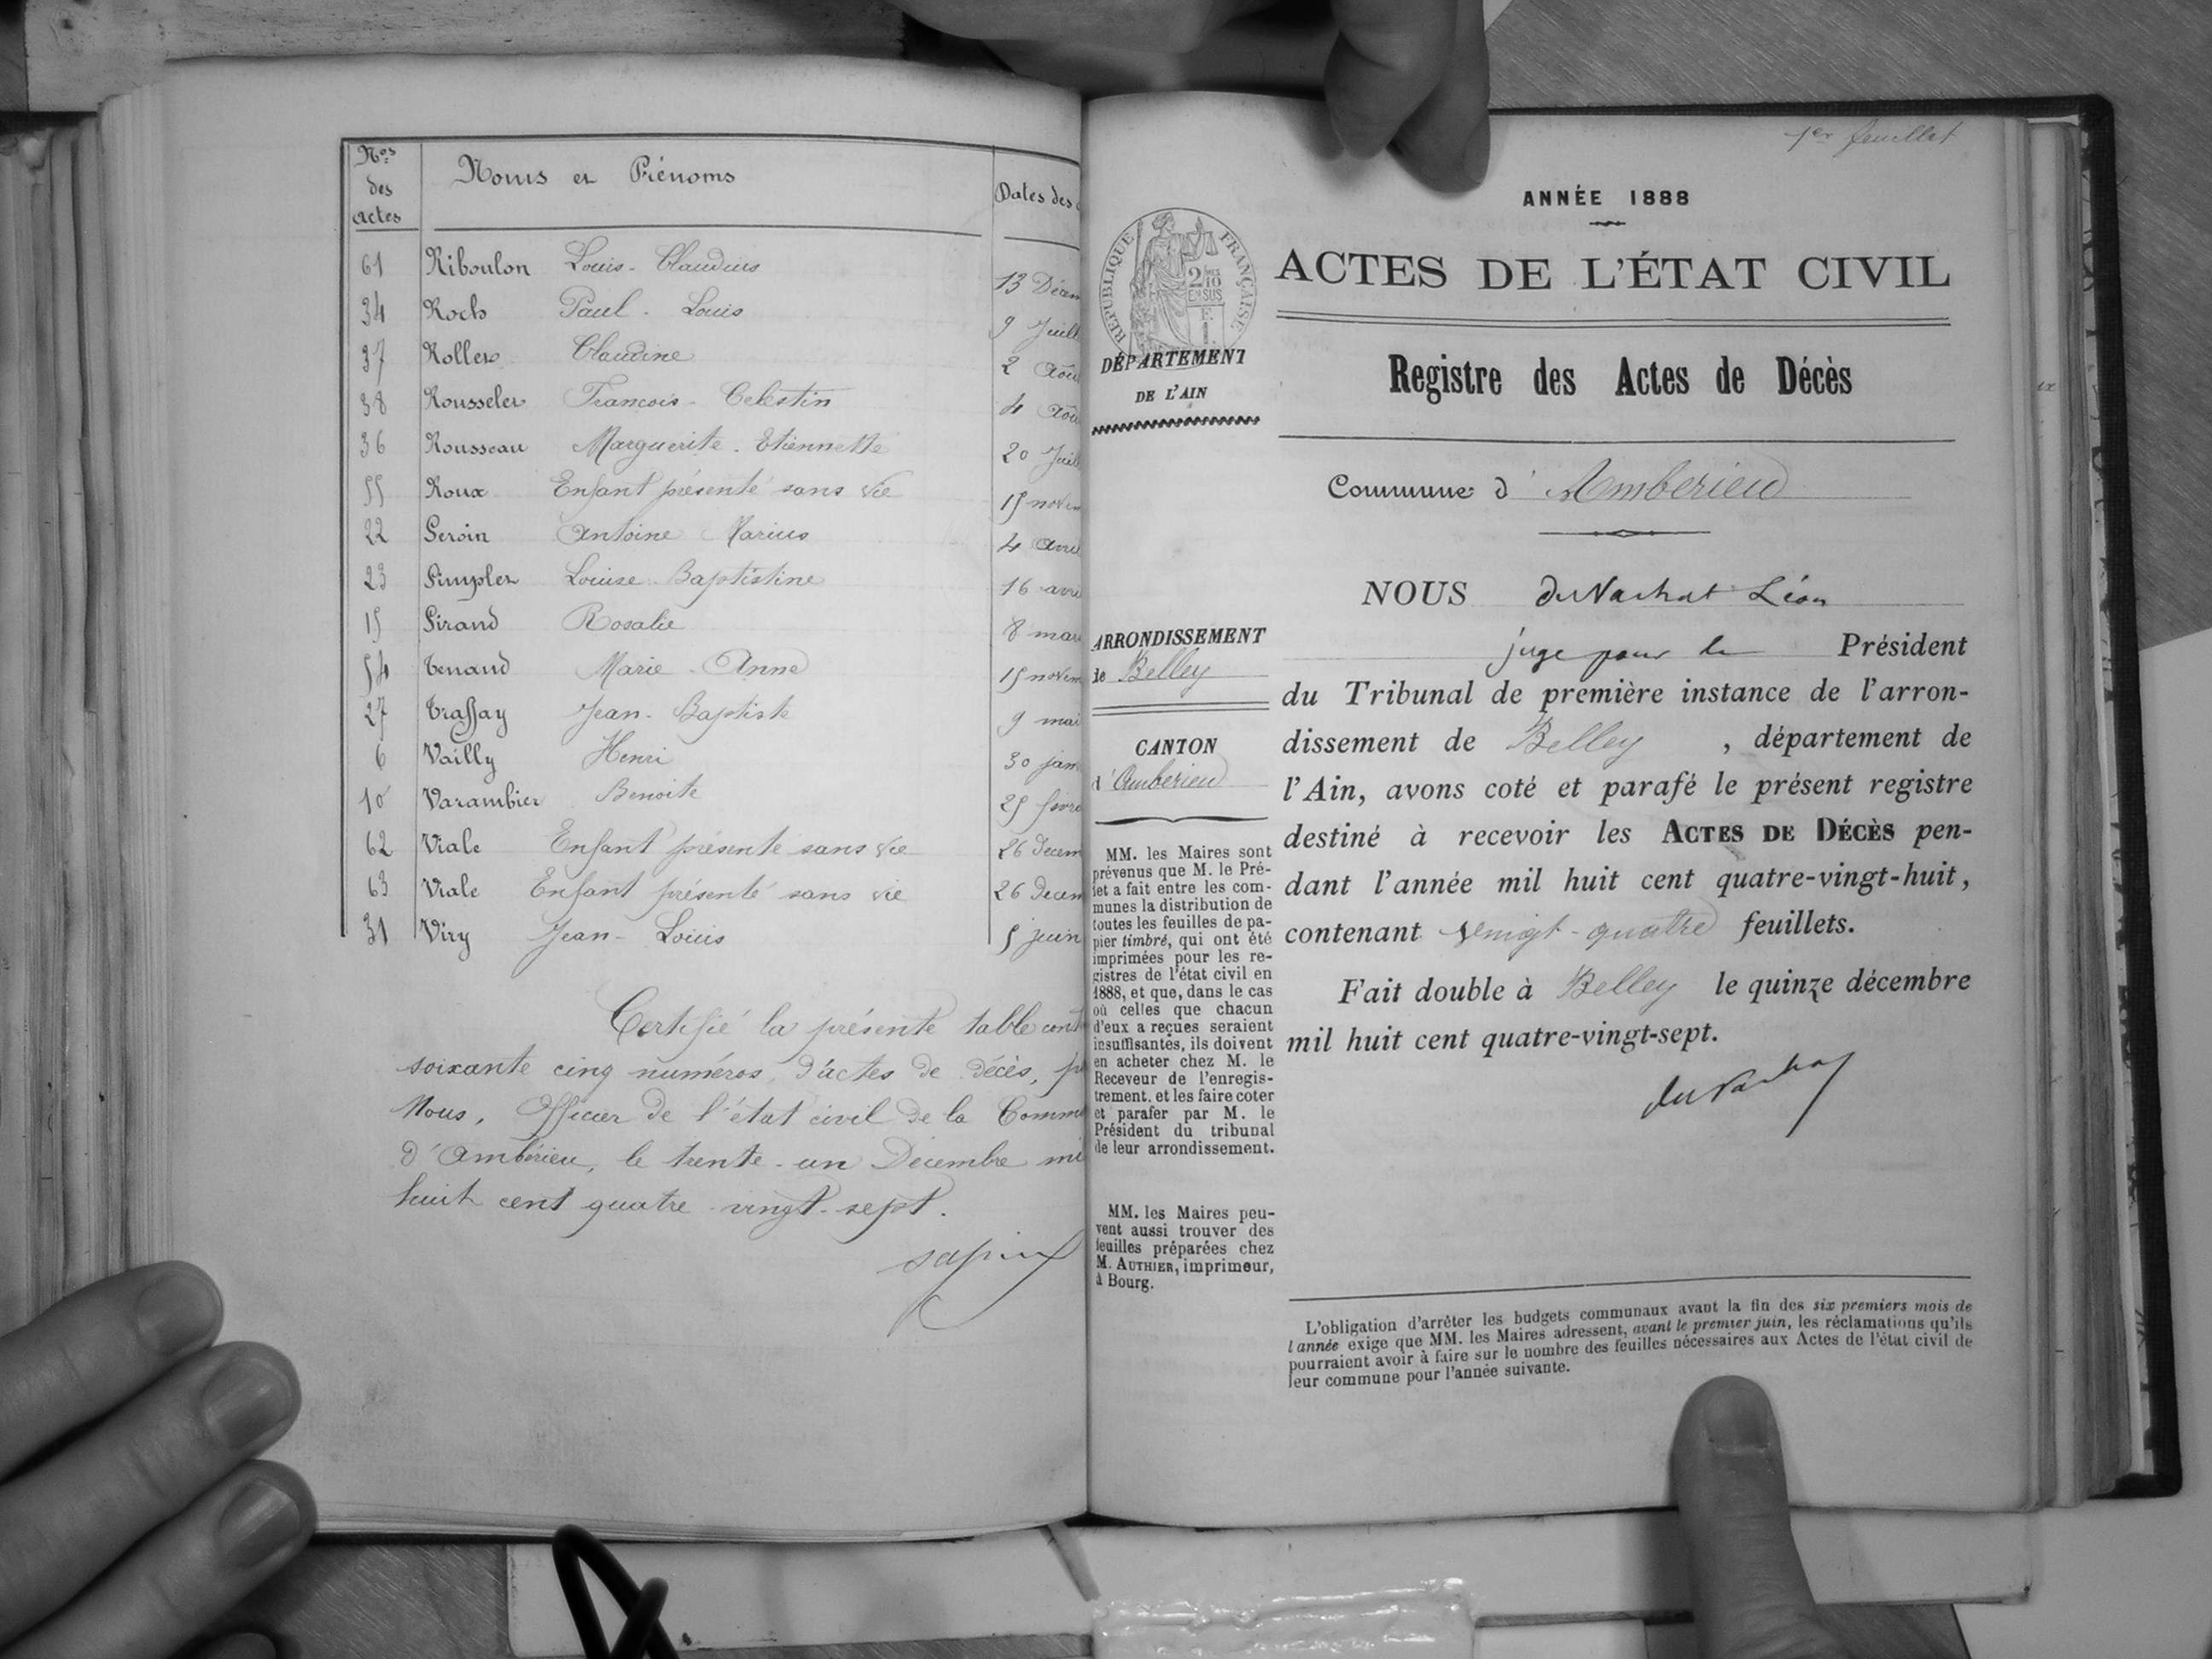 Nos des actes Noms et Prénoms Dates des
61 Riboulon Louis-Claudius 13 Décem
34 Roch Paul-Louis 9 Juill
37 Rollet Claudine 2 Aoû
38 Rousselet Francois-Celestin 4 Aoû
36 Rousseau Marguerite-Etiennette 20 Juill
55 Roux Enfant présenté sans vie 15 novem
22 Seroin Antoine Marius 4 Avril
23 Simplex Louise-Baptistine 16 avri
15 Sirand Rosalie 8 mar
54 Tenand Marie-Anne 15 novem
27 Traffay Jean-Baptiste 9 mai
6 Vailly Henri 30 jan
10 Varambier Benoite 25 févri
62 Viale Enfant présenté sans vie 26 Décem
63 Viale Enfant présenté sans vie 26 Décem
31 Viry Jean-Louis 5 juin
Certifié la présente table cont
soixante cinq numéros, d'actes de décès, p
Nous, Officier de l'état civil de la Commu
d'Ambérieu, le trente-un Décembre mil
huit cent quatre-vingt-sept.
1er feuillet
ANNÉE 1888
ACTES DE L'ÉTAT CIVIL
RÉPUBLIQUE FRANÇAISE
2/10 EN SUS
F. 1
DÉPARTEMENT
DE L'AIN
Registre des Actes de Décès
Commune d'Ambérieu
ARRONDISSEMENT
de Belley
CANTON
d'Ambérieu
MM. les Maires sont
prévenus que M. le Pré-
fet a fait entre les com-
munes la distribution de
toutes les feuilles de pa-
pier timbré, qui ont été
imprimées pour les re-
gistres de l'état civil en
1888, et que, dans le cas
où celles que chacun
d'eux a reçues seraient
insuffisantes, ils doivent
en acheter chez M. le
Receveur de l'enregis-
trement, et les faire coter
et parafer par M. le
Président du tribunal
de leur arrondissement.
MM. les Maires peu-
vent aussi trouver des
feuilles préparées chez
M. AUTHIER, imprimeur,
à Bourg.
NOUS du Nachat Léon
juge pour le Président
du Tribunal de première instance de l'arron-
dissement de Belley, département de
l'Ain, avons coté et parafé le présent registre
destiné à recevoir les ACTES DE DÉCÈS pen-
dant l'année mil huit cent quatre-vingt-huit,
contenant vingt-quatre feuillets.
Fait double à Belley le quinze décembre
mil huit cent quatre-vingt-sept.
du Nachat
L'obligation d'arrêter les budgets communaux avant la fin des six premiers mois de
l'année exige que MM. les Maires adressent, avant le premier juin, les réclamations qu'ils
pourraient avoir à faire sur le nombre des feuilles nécessaires aux Actes de l'état civil de
leur commune pour l'année suivante.